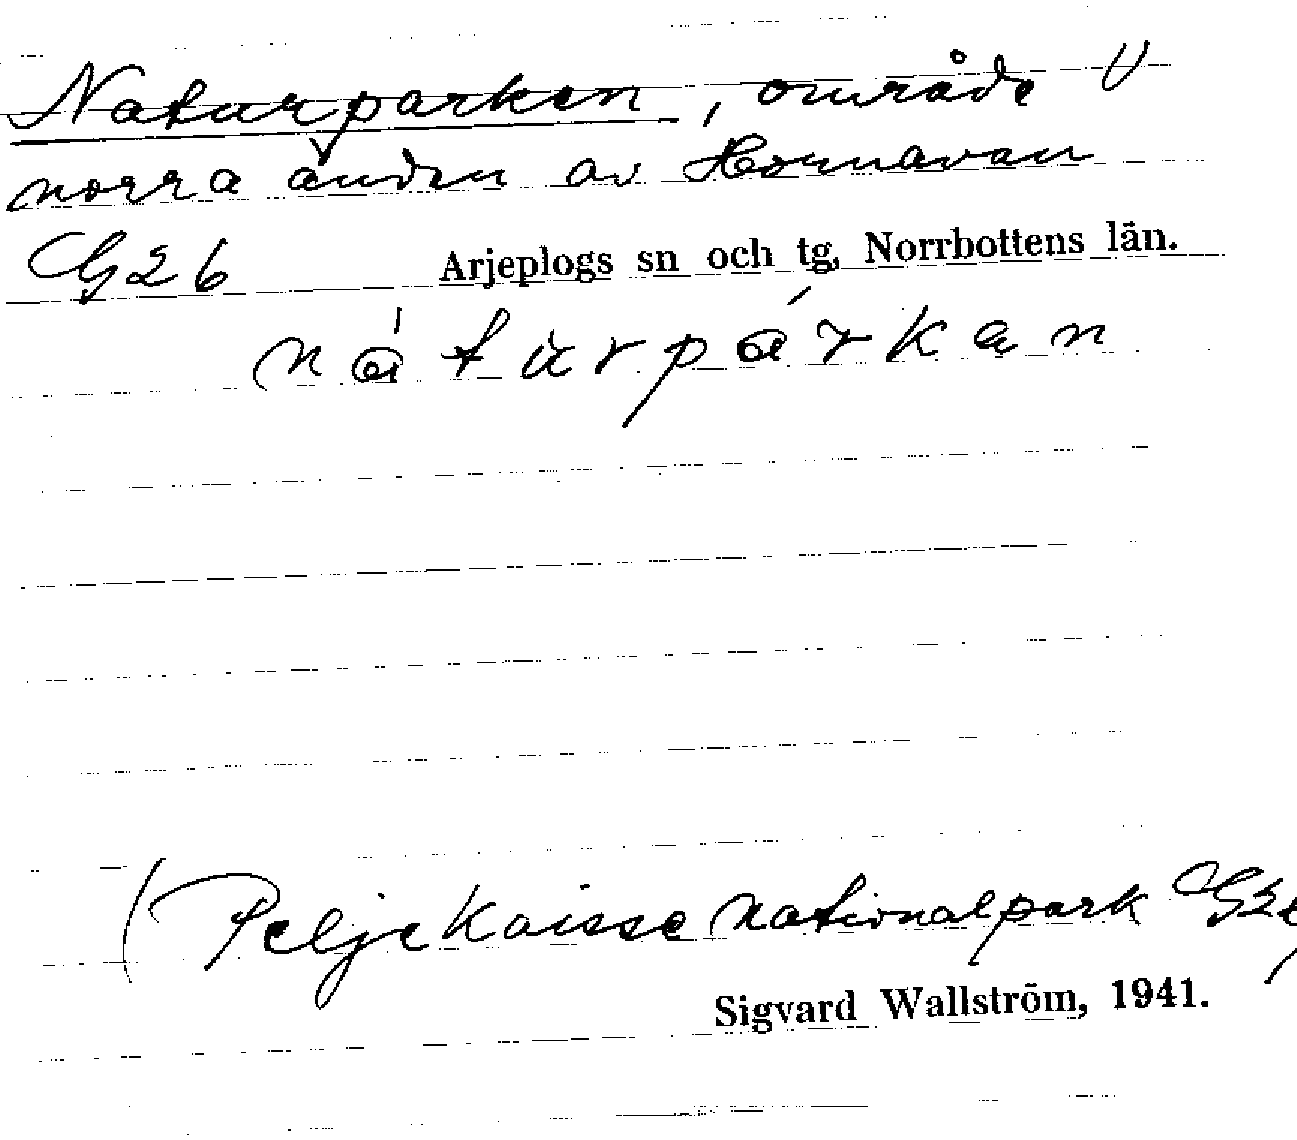 Naturparken, område V
norra änden av Hornavan
G26 Arjeplogs sn och tg, Norrbottens län.
nátùrpárkan
(Peljekaisse nationalpark G26
Sigvard Wallström, 1941.